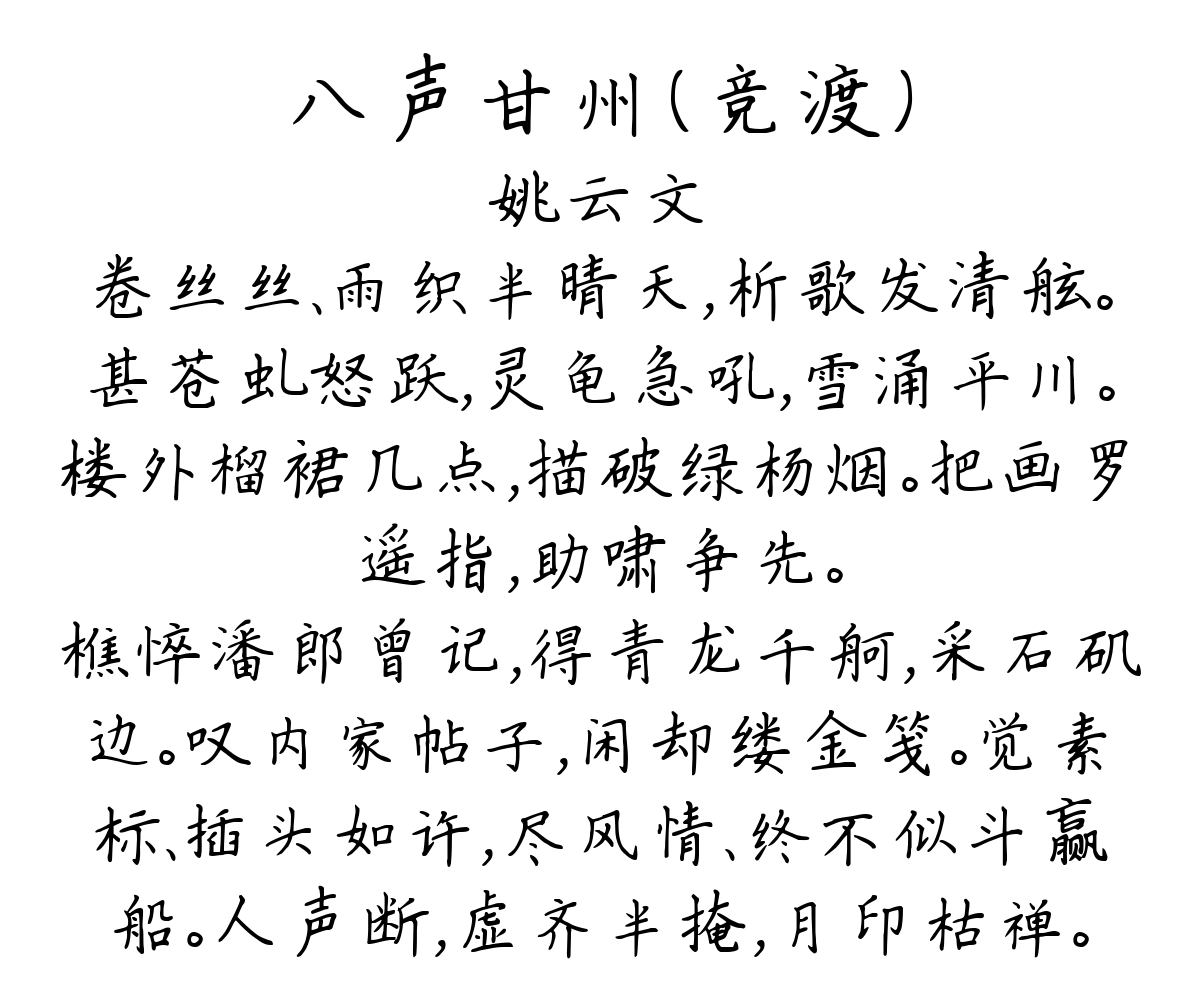 八声甘州(竞渡)
姚云文
卷丝丝、雨织半晴天,析歌发清舷。
甚苍虬怒跃,灵龟急吼,雪涌平川。
楼外榴裙几点,描破绿杨烟。把画罗
遥指,助啸争先。
樵悴潘郎曾记,得青龙千舸,采石矶
边。叹内家帖子,闲却缕金笺。觉素
标、插头如许,尽风情、终不似斗赢
船。人声断,虚齐半掩,月印枯禅。